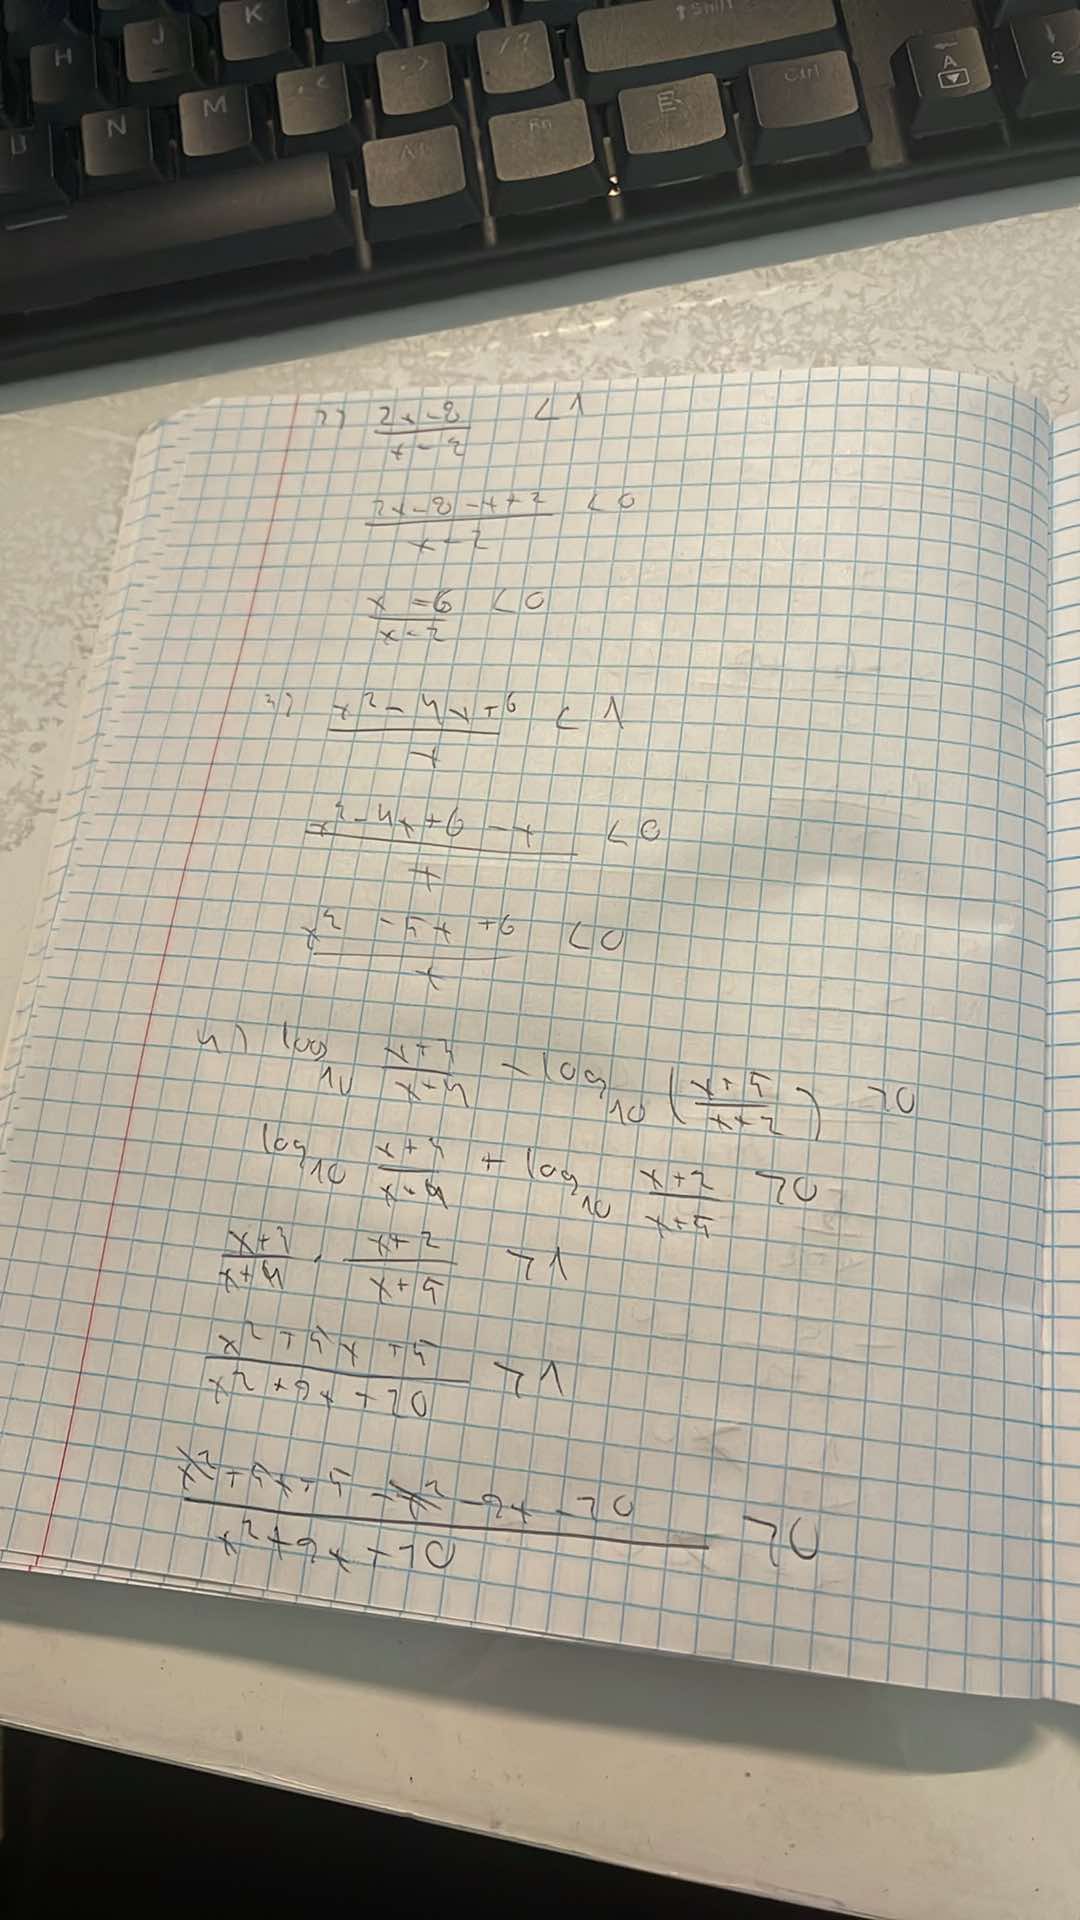 K
Shift
H
J
/ ?
. >
, <
Ctrl
A
S
N
M
Fn
2) (2x-8)/(x-2) <1
(2x-8-x+2)/(x-2) <0
(x-6)/(x-2) <0
3) (x²-4x+6)/x < 1
(x²-4x+6-x)/x <0
(x²-5x+6)/x <0
4) log₁₀ (x+3)/(x+4) - log₁₀ ((x+5)/(x+2)) >0
log₁₀ (x+3)/(x+4) + log₁₀ (x+2)/(x+5) >0
(x+3)/(x+4) · (x+2)/(x+5) >1
(x²+5x+5)/(x²+9x+20) >1
(x²+5x+5-x²-9x-20)/(x²+9x+20) >0